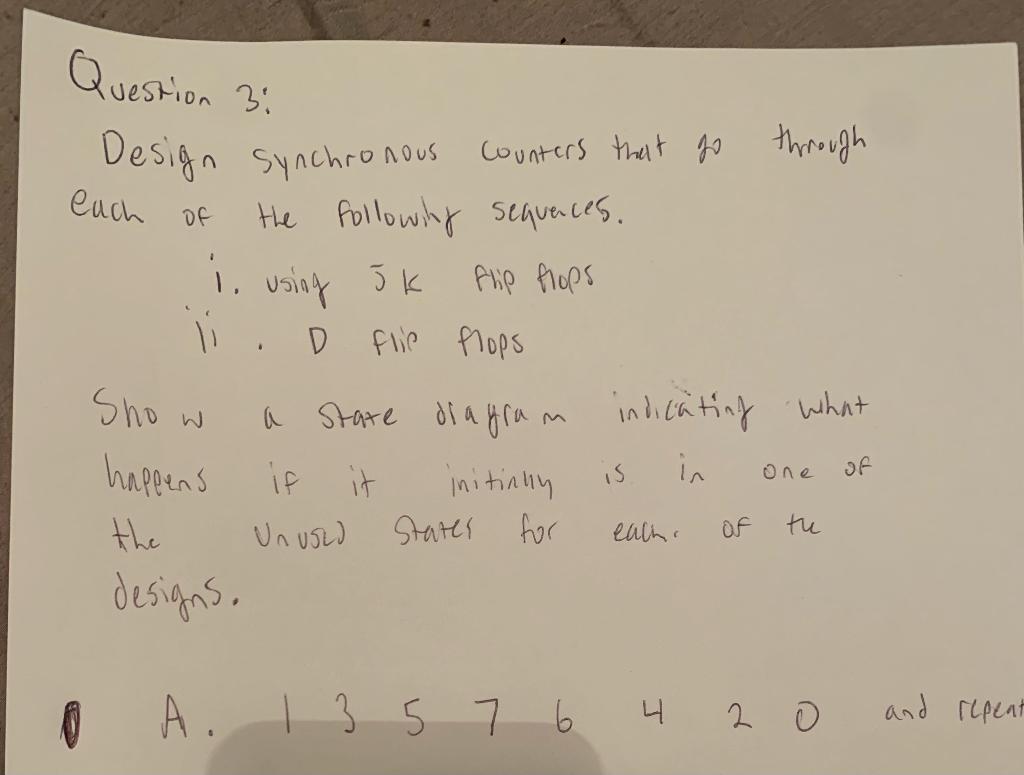 Question 3:
Design synchronous counters that go through
each of the following sequences.
i. using JK flip flops
ii. D flip flops
Show a state diagram indicating what
happens if it initially is in one of
the unused states for each of the
designs.
A. 1 3 5 7 6 4 2 0 and repeat